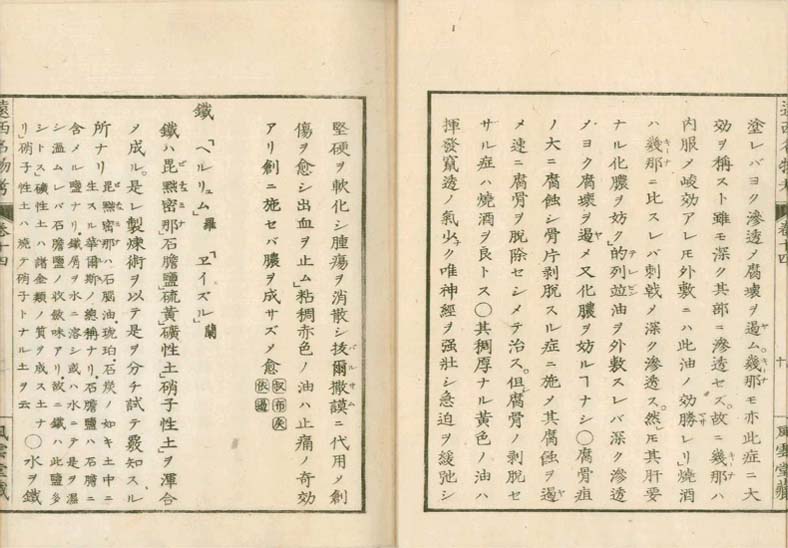 塗レバヨク滲透メ腐壞ヲ遏ム。幾那モ亦此症ニ大
効ヲ稱スト雖モ深ク其部ニ滲透セズ。故ニ幾那ハ
内服メ峻効アレ𪜈外敷ニハ此油ノ効勝レリ」燒酒
ハ幾那ニ比スレバ刺戟メ深ク滲透ス。然𪜈其肝要
ナル化膿ヲ妨ク」的列竝油ヲ外敷スレバ深ク滲透
メヨク腐壞ヲ遏メ又化膿ヲ妨ルヿナシ〇腐骨疽
ノ大ニ腐蝕シ骨片剥脱スル症ニ施メ其腐蝕ヲ遏
メ速ニ腐骨ヲ脱除セシメテ治ス。但腐骨ノ剥脱セ
サル症ハ燒酒ヲ良トス〇其稠厚ナル黄色ノ油ハ
揮發竄透ノ氣少ク唯神經ヲ強壯シ急迫ヲ緩弛シ
堅硬ヲ軟化シ腫瘍ヲ消散シ抜爾撒謨ニ代用メ創
傷ヲ愈シ出血ヲ止ム」粘稠赤色ノ油ハ止痛ノ奇効
アリ創ニ施セバ膿ヲ成サズメ愈
鐵 「ヘルリュム」羅 「ヱイズル」蘭
鐵ハ毘㸃密那」石膽鹽」硫黄」礦性土」硝子性土」ヲ渾合
メ成ル。是レ製煉術ヲ以テ是ヲ分チ試テ覈知スル
所ナリ 毘㸃密那ハ石腦油、琥珀、石炭ノ如キ土中ニ
生スル華爾斯ノ總稱ナリ。石膽鹽ハ石膽ニ
含メル鹽ナリ。鐵屑ヲ水ニ溶シ或ハ水ニテ是ヲ濕
シ溫ムレバ石膽鹽ノ收歛味アリ。故ニ鐵ハ此鹽多
シトス」礦性土ハ諸金類ノ質ヲ成ス土ナ
リ」硝子性土ハ燒テ硝子トナル土ヲ云 〇水ヲ鐵
遠西名物考 卷十四
風雲堂藏